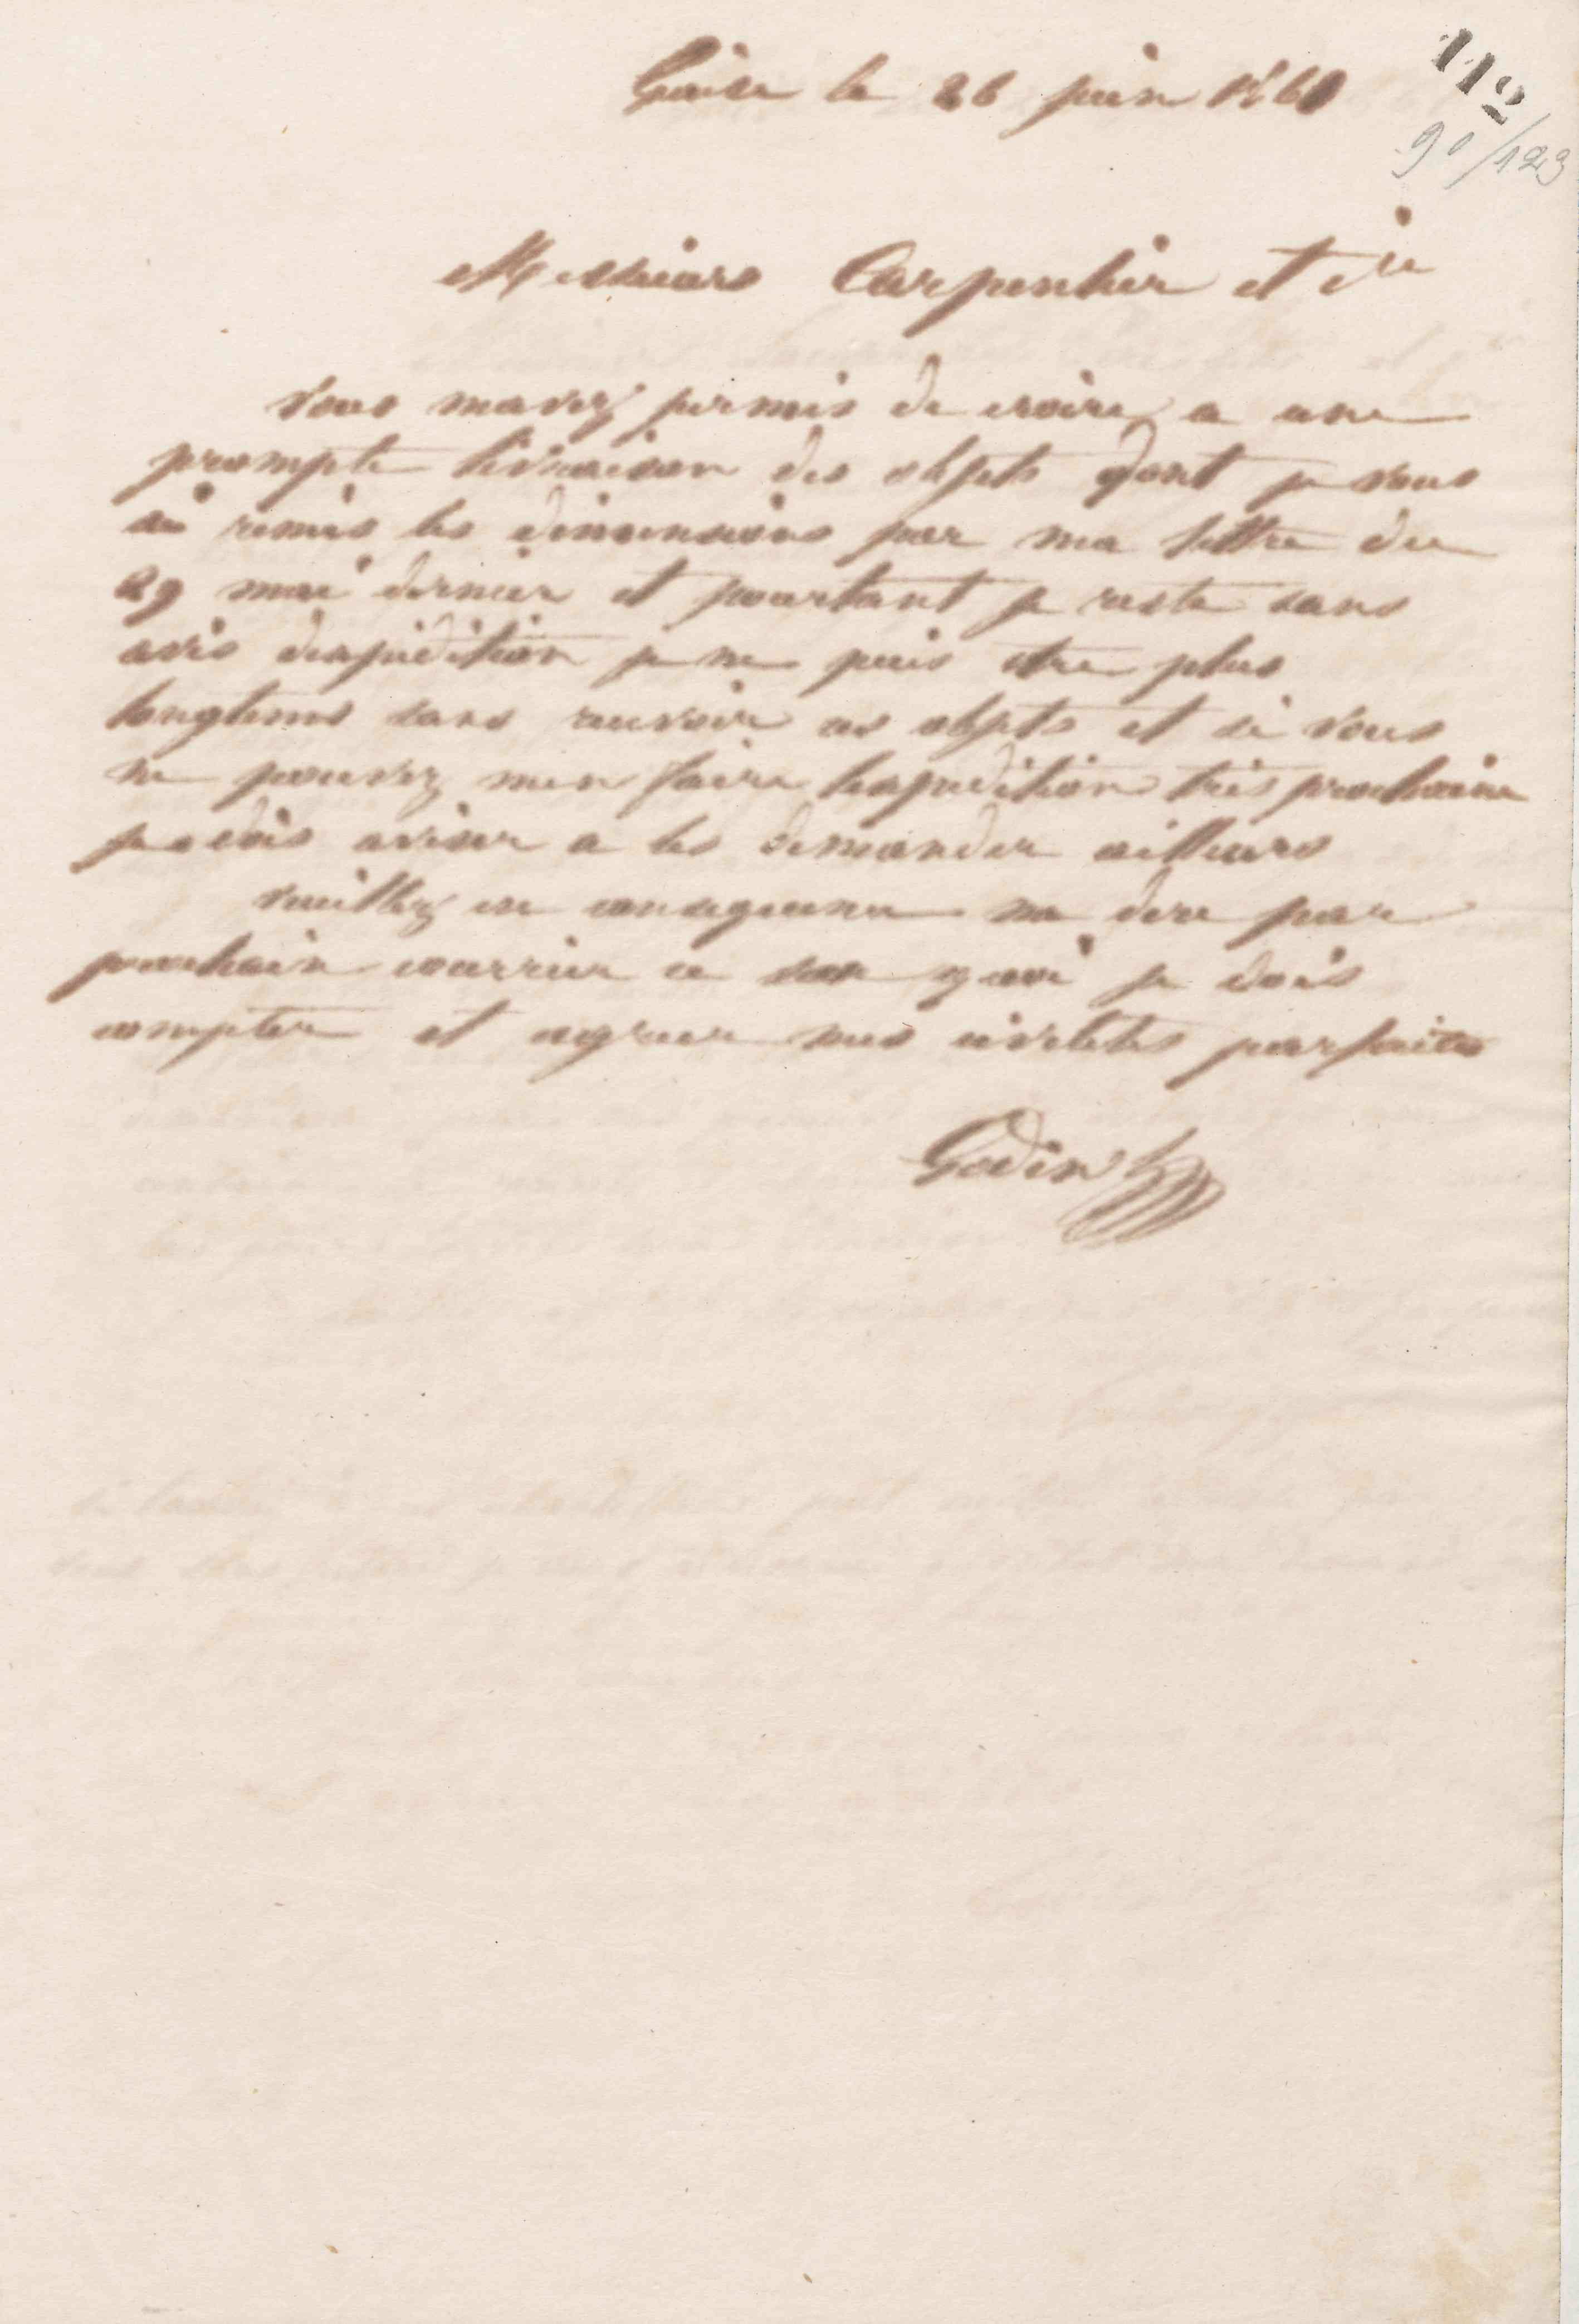 Guise le 26 juin 1860
112
90/123
Messieurs Carpentier et Cie
Vous mavez permis de croire a une
prompte livraison des objets dont je vous
ai remis les dimensions par ma lettre du
29 mai dernier et pourtant je reste sans
avis dexpedition je ne puis etre plus
longtems sans recevoir ces objets et si vous
ne pouvez men faire lexpedition très prochaine
je dois aviser a les demander ailleurs
Veuillez en consequence me dire par
prochain courrier a quoi je dois
compter et agreer mes civilités parfaites
Godin